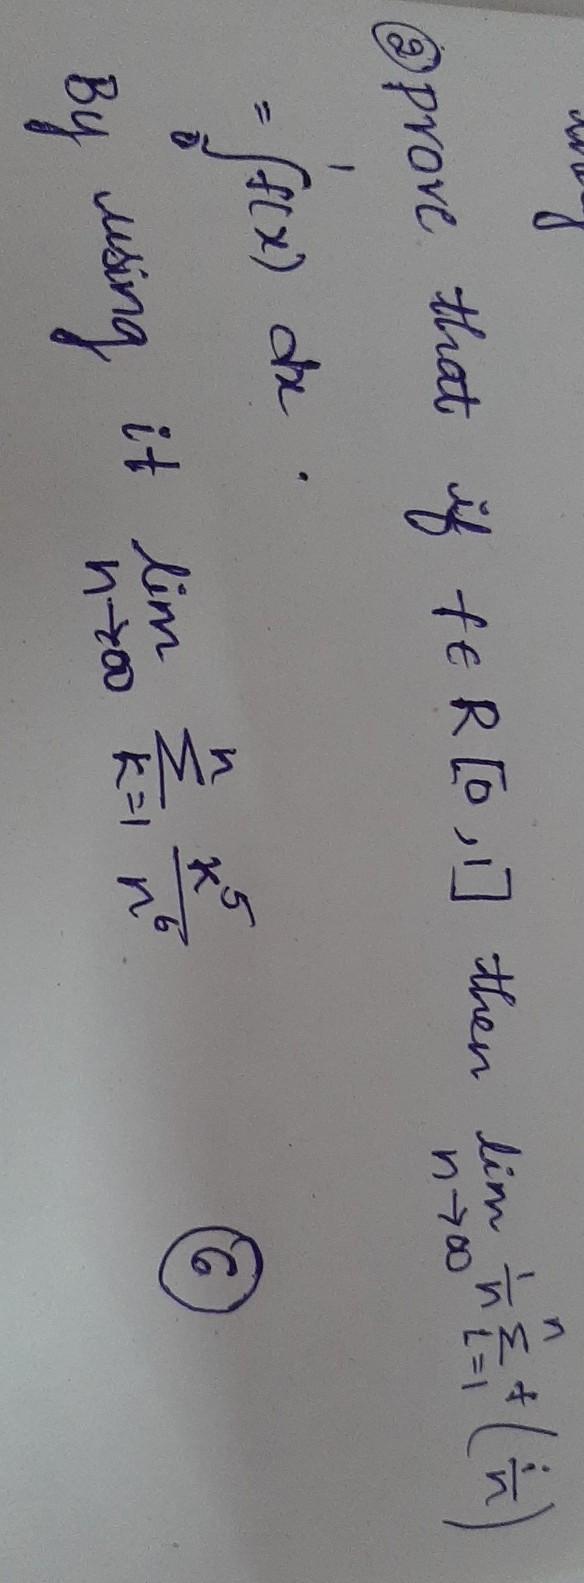 ② prove that if f ∈ R [0, 1] then lim n→∞ 1/n Σ i=1 n f (i/n)
= ∫₀¹ f(x) dx .
By using it lim n→∞ Σ K=1 n K⁵/n⁶
⑥